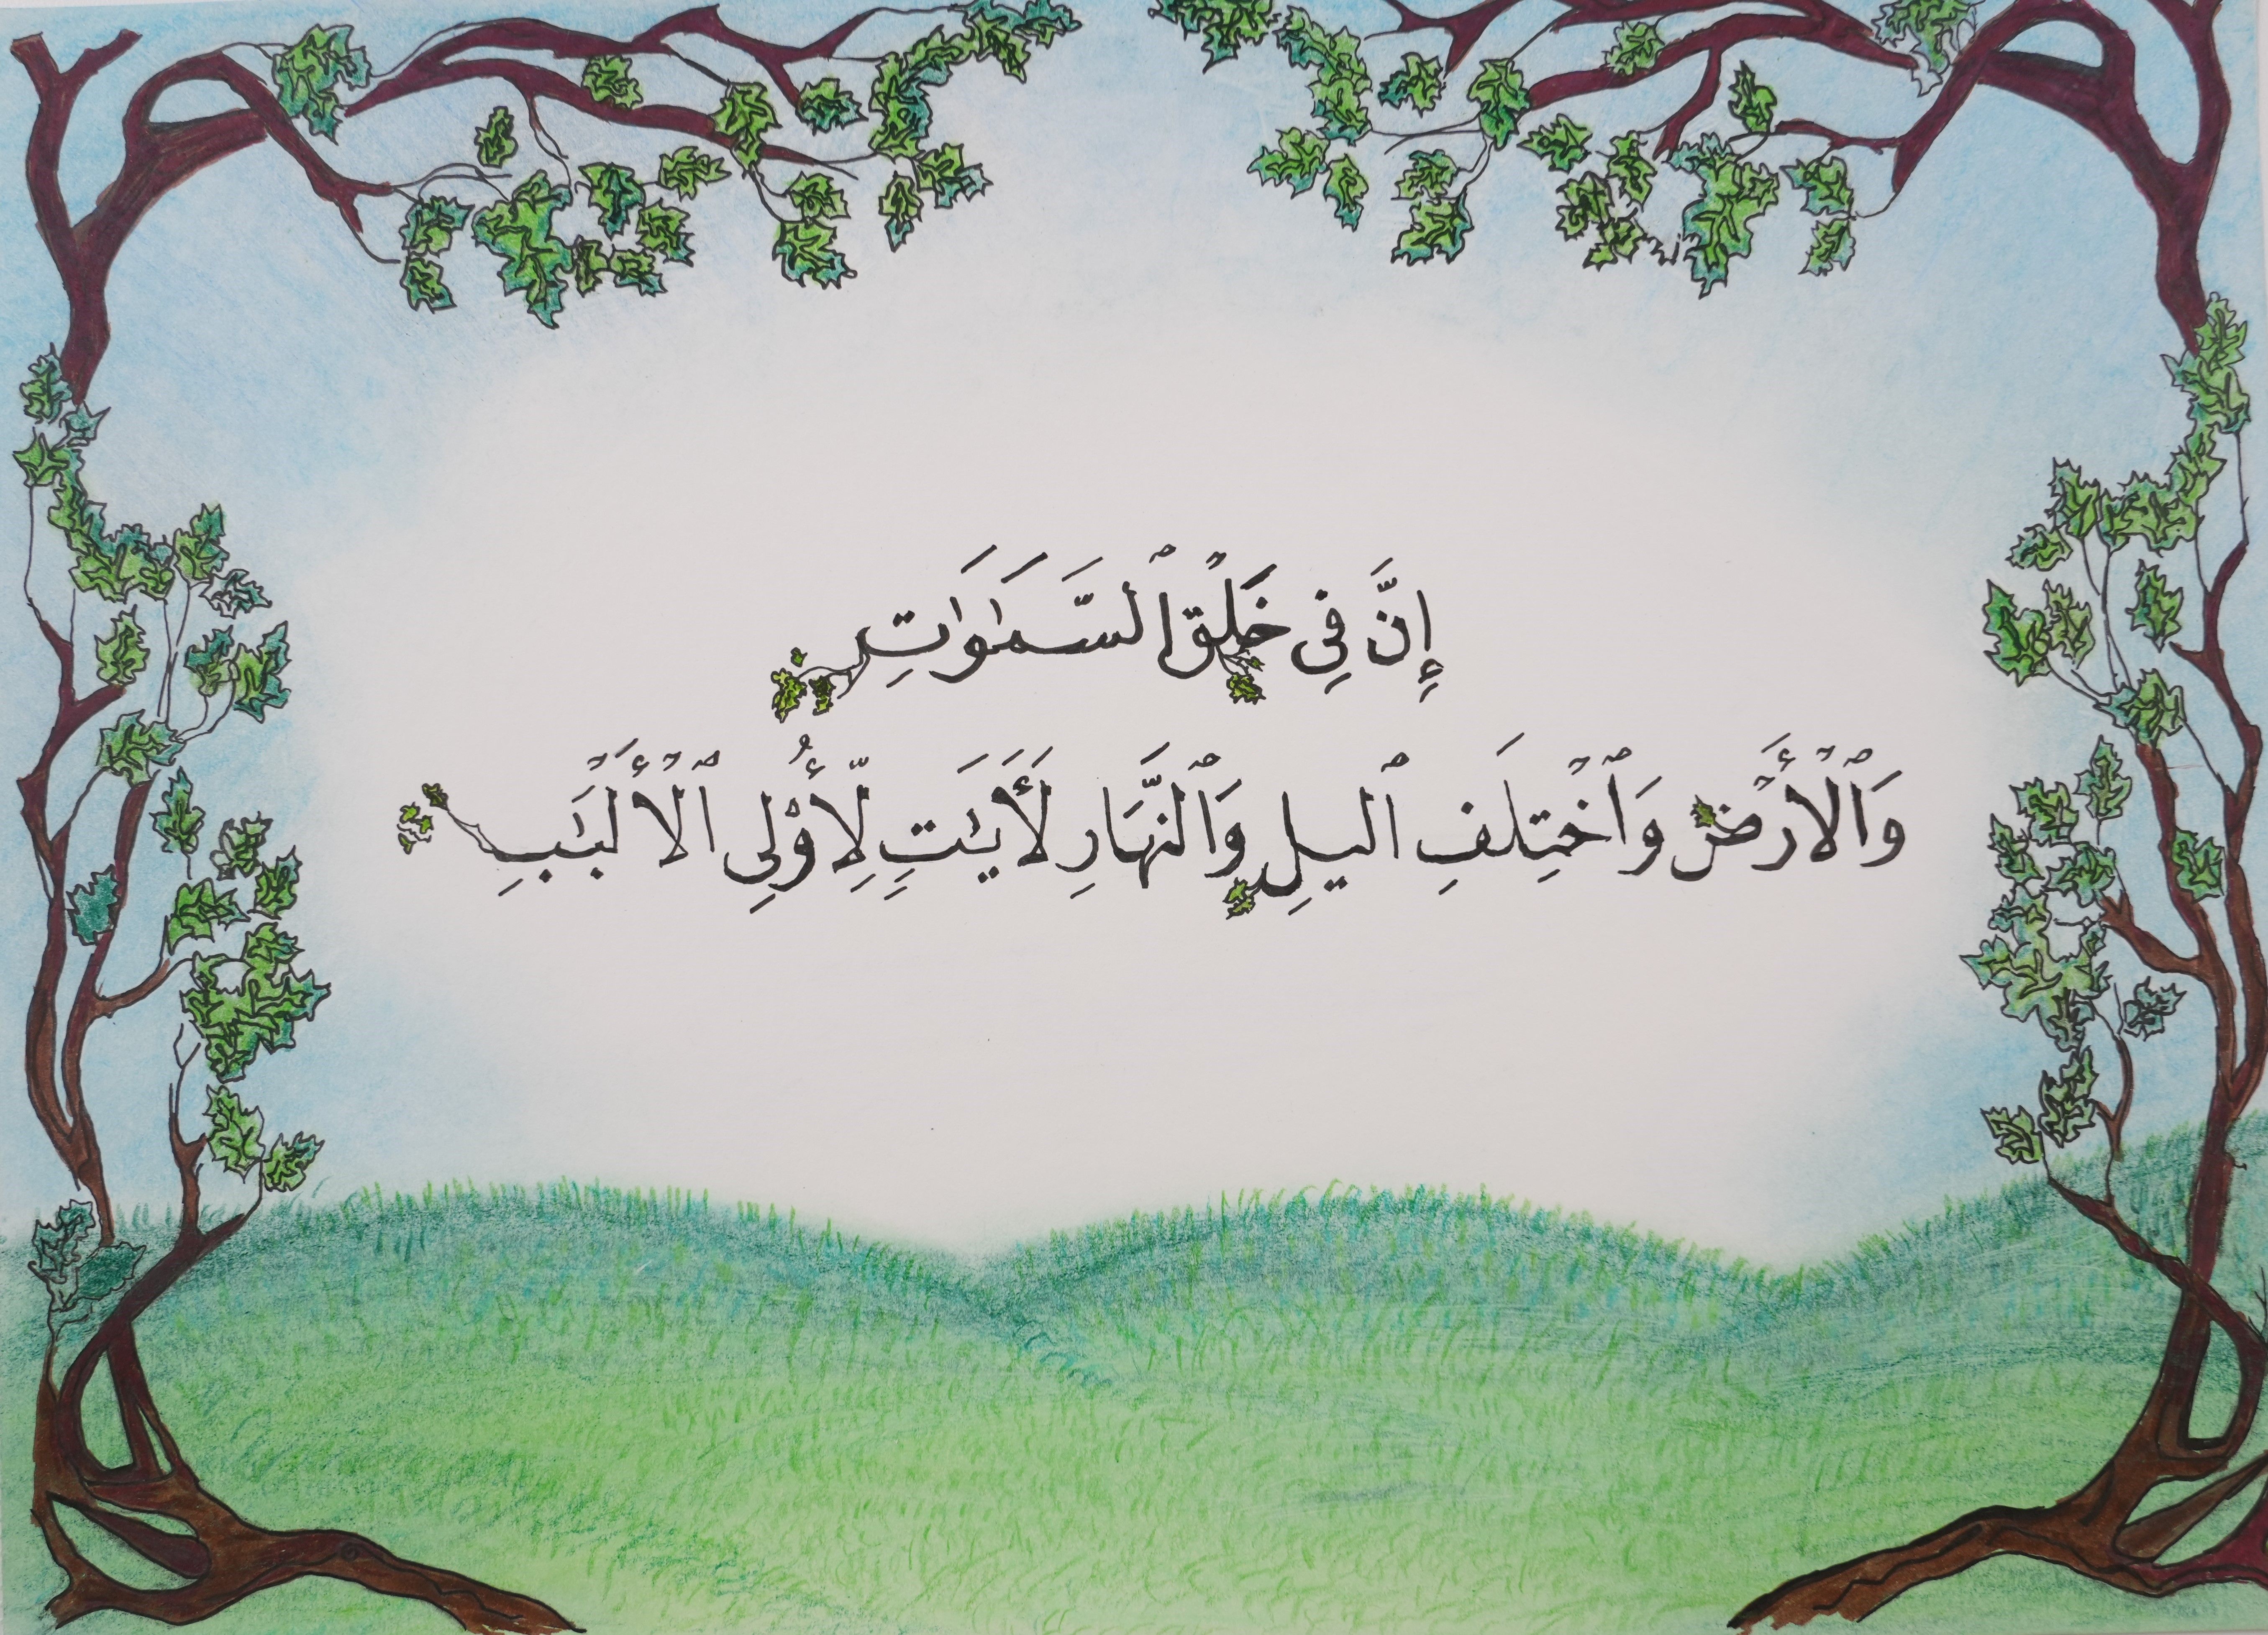 إِنَّ فِى خَلْقِ ٱلسَّمَٰوَٰتِ
وَٱلْأَرْضِ وَٱخْتِلَٰفِ ٱلَّيْلِ وَٱلنَّهَارِ لَأَيَٰتٍ لِّأُو۟لِى ٱلْأَلْبَٰبِ